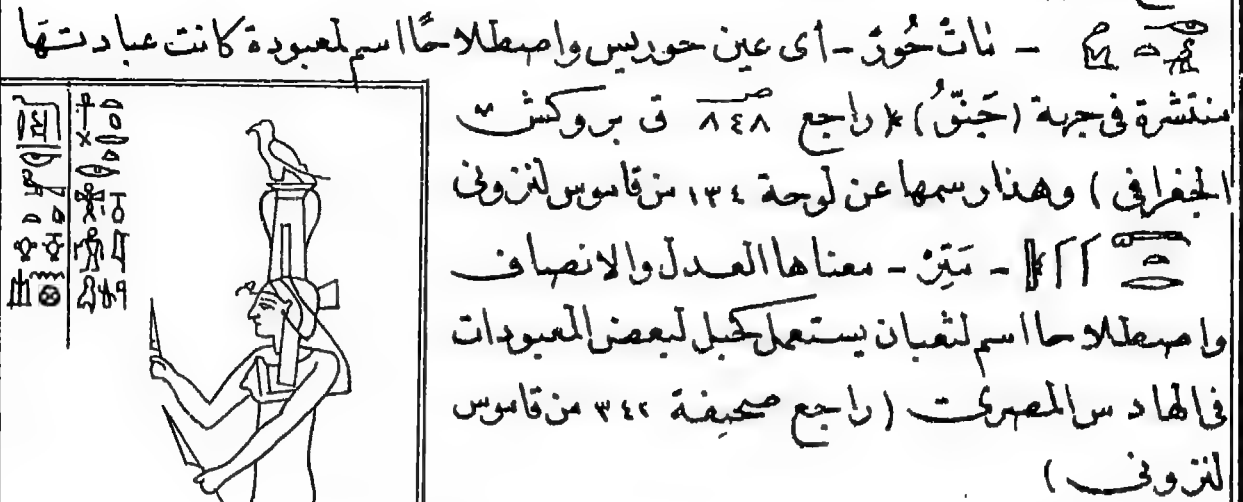 – نات حُوز – أى عين حوريس واصطلاحًا اسم لمعبودة كانت عبادتها
منتشرة فى جهة (حَبَنّو) (راجع صـ ٨٤٨ ق بروكش
الجغرافى) وهذا رسمها عن لوحة ١٣٤ من قاموس لنزونى
– مَتِرْ – معناها العدل والانصاف
واصطلاحا اسم لثعبان يستعمل كحبل لبعض المعبودات
فى الهادس المصرى (راجع صحيفة ٣٤٢ من قاموس
لنزونى)